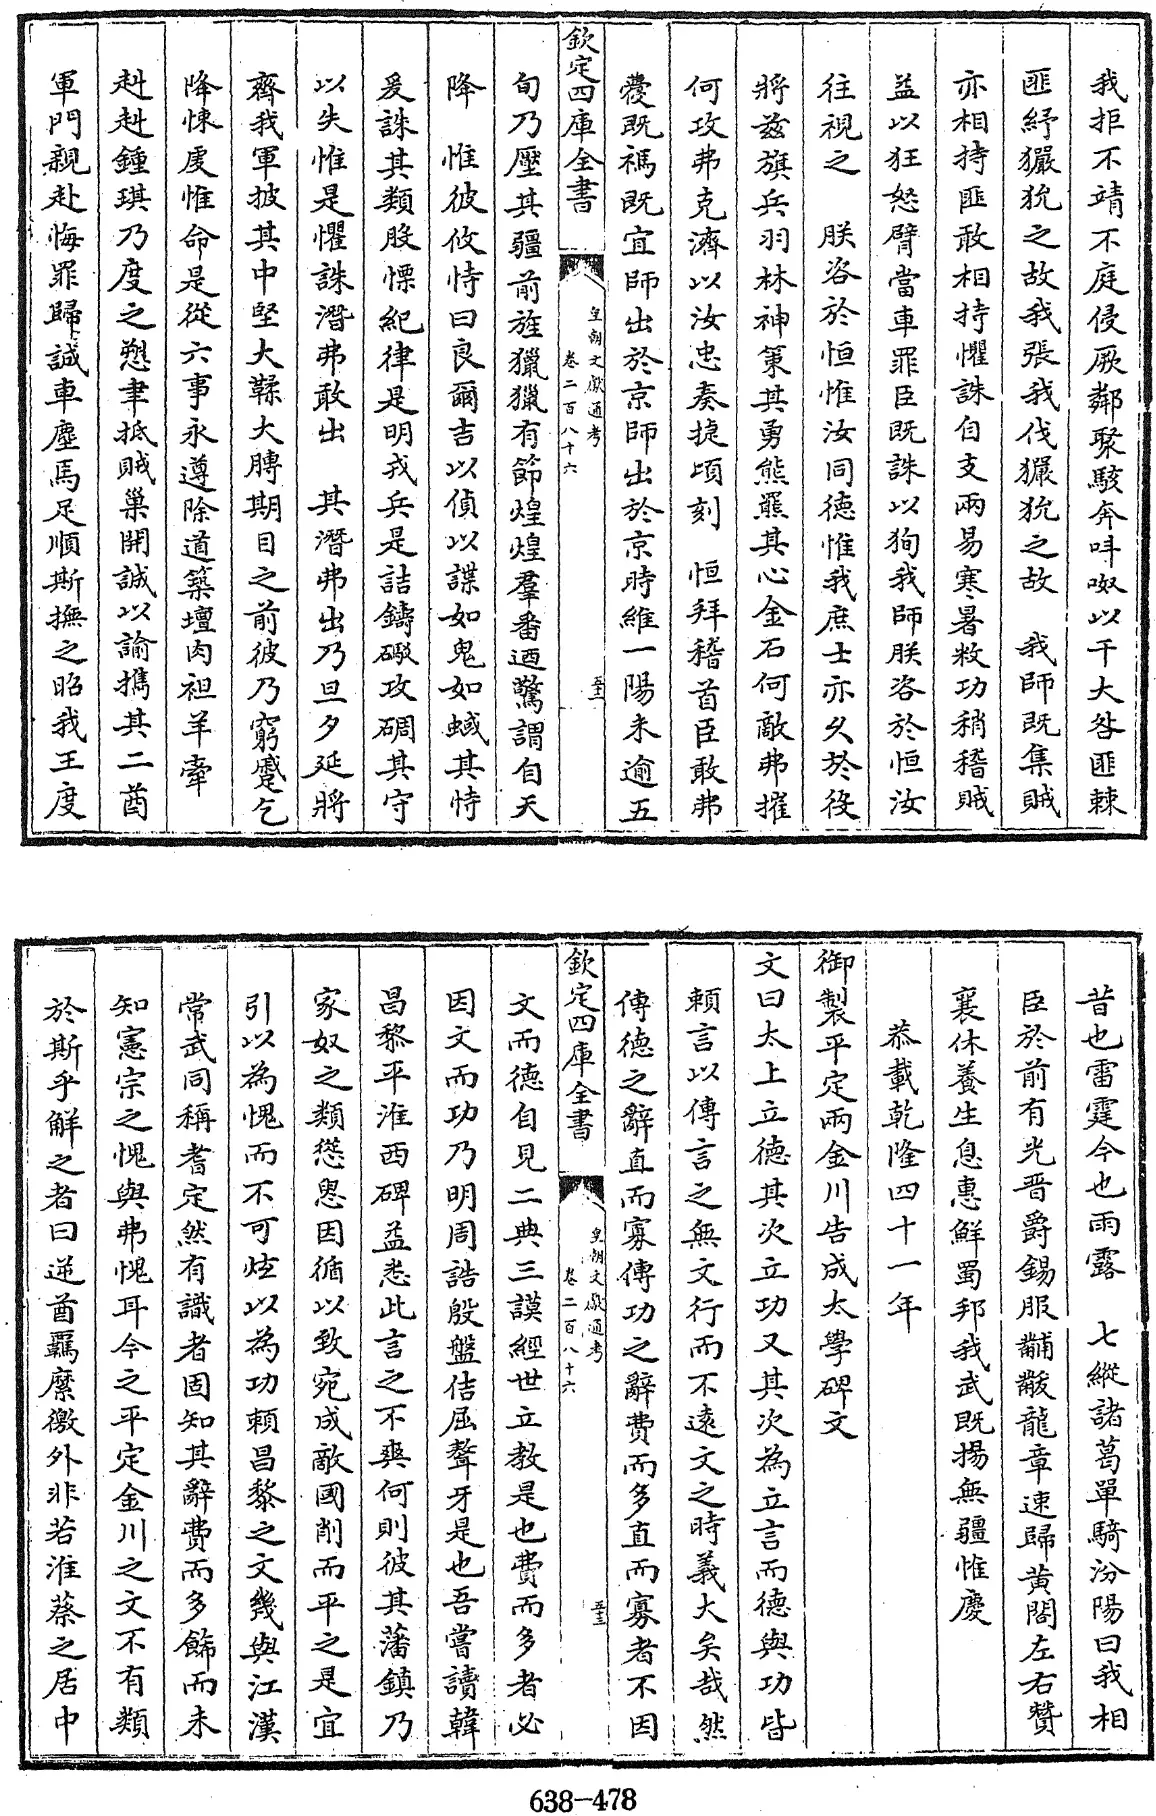 我拒不靖不庭侵厥鄰聚駭奔呌呶以干大咎匪棘
匪紓玁狁之故我張我伐玁狁之故　我師既集賊
亦相持匪敢相持懼誅自支兩易寒暑敉功稍稽賊
益以狂怒臂當車罪臣既誅以狥我師朕咨於恒汝
往視之　朕咨於恒惟汝同德惟我庶士亦久於役
將兹旗兵羽林神策其勇熊羆其心金石何敵弗摧
何攻弗克濟以汝忠奏捷頃刻　恒拜稽首臣敢弗
蘉既禡既宜師出於京師出於京時維一陽未逾五
欽定四庫全書
皇朝文獻通考
卷二百八十六
五十二
旬乃壓其疆前旌獵獵有節煌煌羣番迺驚謂自天
降　惟彼攸恃曰良爾吉以偵以諜如鬼如蜮其恃
爰誅其類股慄紀律是明戎兵是詰鑄礮攻碉其守
以失惟是懼誅潛弗敢出　其潛弗出乃旦夕延將
齊我軍披其中堅大鞣大膊期目之前彼乃窮蹙乞
降悚虔惟命是從六事永遵除道築壇肉袒羊牽
赳赳鍾琪乃度之愬聿抵賊巢開誠以諭攜其二酋
軍門親赴悔罪歸誠車塵馬足順斯撫之昭我王度
昔也雷霆今也雨露　七縱諸葛單騎汾陽曰我相
臣於前有光晋爵錫服黼黻龍章速歸黄閣左右贊
襄休養生息惠鮮蜀邦我武既揚無疆惟慶
恭載乾隆四十一年
御製平定兩金川告成太學碑文
文曰太上立德其次立功又其次為立言而德與功皆
頼言以傳言之無文行而不逺文之時義大矣哉然
傳德之辭直而寡傳功之辭費而多直而寡者不因
欽定四庫全書
皇朝文獻通考
卷二百八十六
五十三
文而德自見二典三謨經世立教是也費而多者必
因文而功乃明周誥殷盤佶屈聱牙是也吾嘗讀韓
昌黎平淮西碑益悉此言之不爽何則彼其藩鎮乃
家奴之類愆㤙因循以致宛成敵國削而平之是宜
引以為愧而不可炫以為功頼昌黎之文幾與江漢
常武同稱耆定然有識者固知其辭費而多飾而未
知憲宗之愧與弗愧耳今之平定金川之文不有類
於斯乎解之者曰逆酋羈縻徼外非若淮蔡之居中
638-478